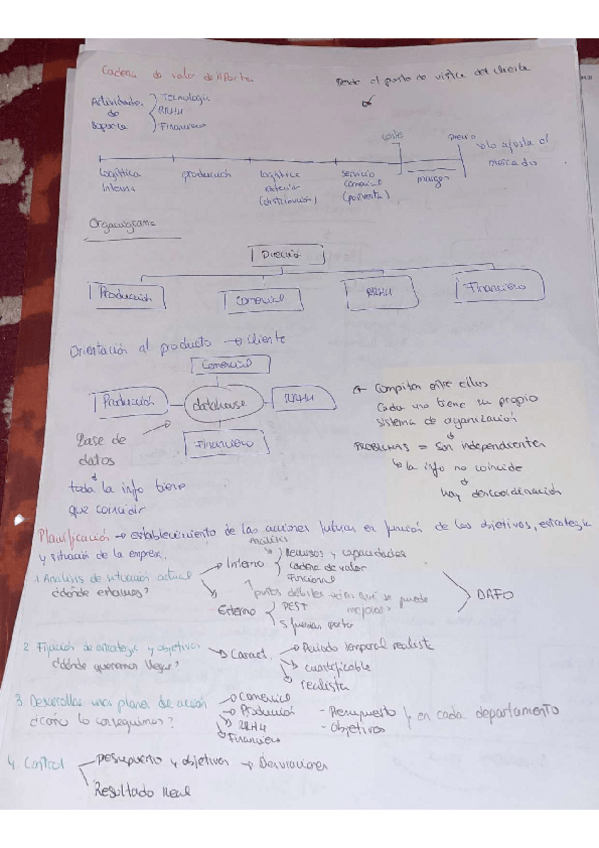 Cadena de valor de M Porter
Desde el punto de vista del cliente
Actividades de Soporte
Tecnología
RRHH
Financiero
coste
precio
solo ajusta el mercado
margen
Logística Interna
producción
Logística exterior (distribución)
servicio comercial (posventa)
Organigrama
Dirección
Producción
Comercial
RRHH
Financiero
Orientación al producto → cliente
Comercial
Producción
database
RRHH
Financiero
Base de datos
toda la info tiene que coincidir
Compiten entre ellos
Cada uno tiene su propio
sistema de organización
PROBLEMAS = Son independientes
la info no coincide
hay descoordinación
Planificación → establecimiento de las acciones futuras en función de los objetivos, estrategia
y situación de la empresa.
Análisis
1. Análisis de situación actual
¿dónde estamos?
Interno
Recursos y capacidades
cadena de valor
Funcional
puntos débiles que se puede mejorar
Externo
PEST
5 fuerzas porter
DAFO
2. Fijación de estrategia y objetivos
¿dónde queremos llegar?
Caract.
Periodo temporal realista
cuantificable
realista
3. Desarrollar unos planes de acción
¿cómo lo conseguimos?
Comercial
Producción
RRHH
Financiero
- Presupuesto y en cada departamento
- Objetivos
4. Control
Presupuesto y objetivos → Desviaciones
Resultado Real